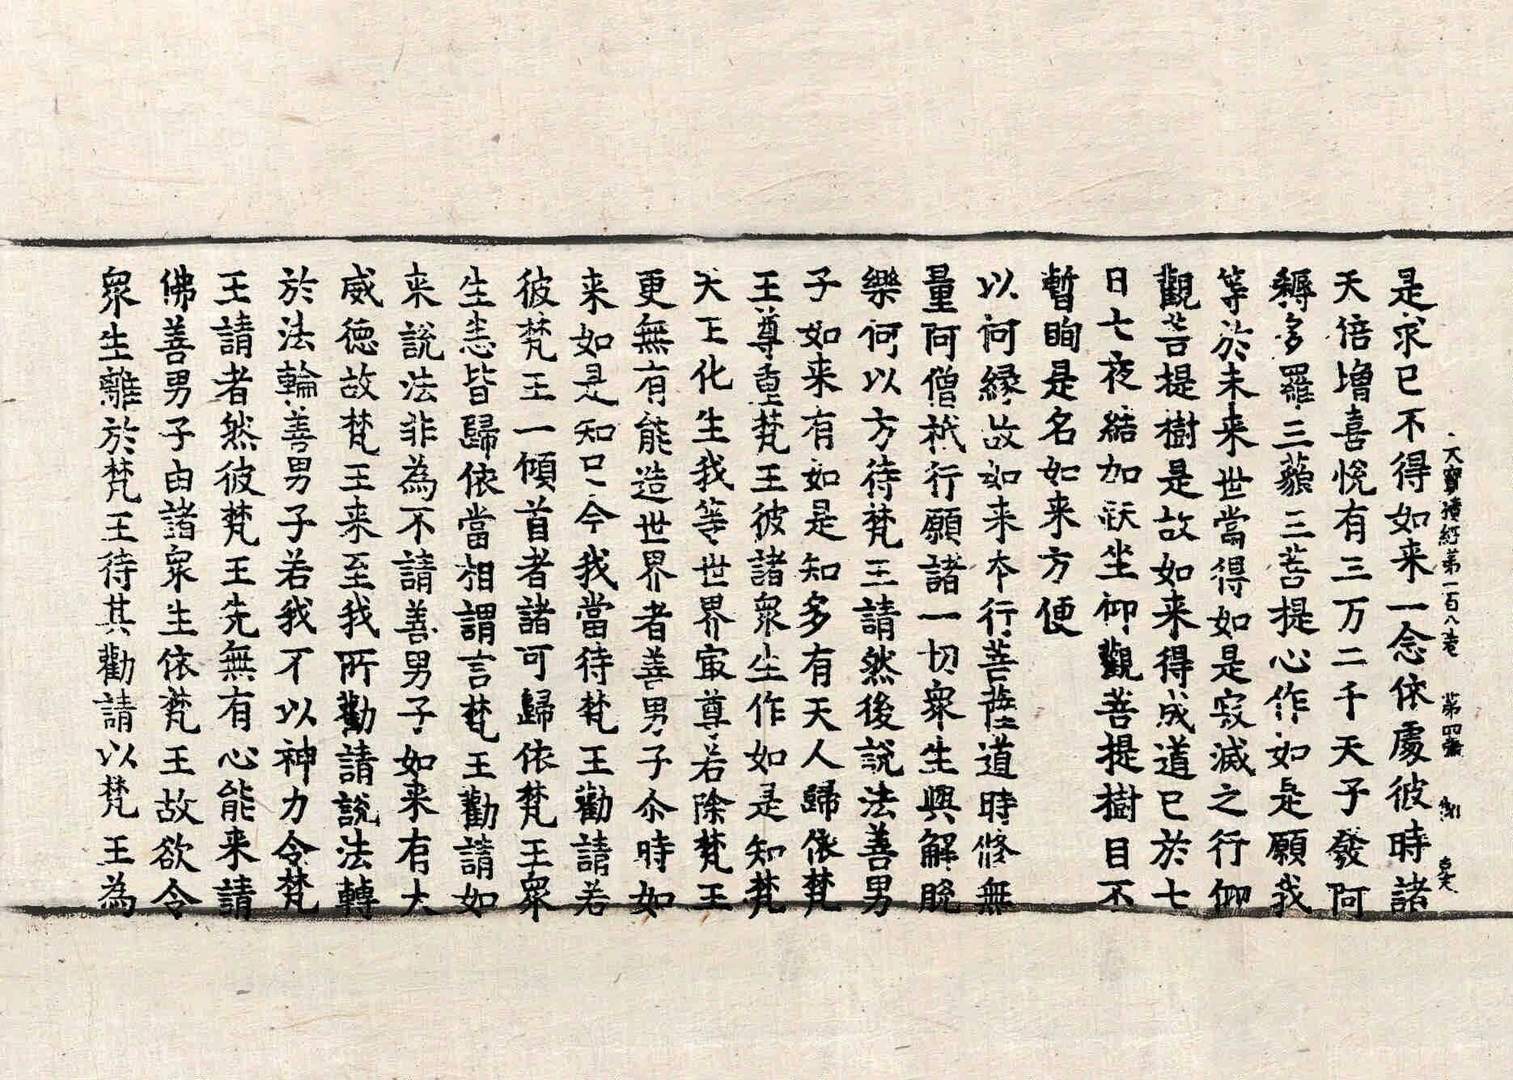 大寶積經第一百八卷 第四張
是求已不得如来一念依處彼時諸
天倍增喜悅有三万二千天子發阿
耨多羅三藐三菩提心作如是願我
等於未来世當得如是寂滅之行仰
觀菩提樹是故如来得成道已於七
日七夜結加趺坐仰觀菩提樹目不
暫眴是名如来方便
以何緣故如来本行菩薩道時修無
量阿僧祇行願諸一切衆生興解脫
樂何以方待梵王請然後說法善男
子如来有如是知多有天人歸依梵
王尊重梵王彼諸衆生作如是知梵
天王化生我等世界㝡尊若除梵王
更無有能造世界者善男子尒時如
来如是知已今我當待梵王勸請若
彼梵王一傾首者諸可歸依梵王衆
生悉皆歸依當相謂言梵王勸請如
来說法非為不請善男子如来有大
威德故梵王来至我所勸請說法轉
於法輪善男子若我不以神力令梵
王請者然彼梵王先無有心能来請
佛善男子由諸衆生依梵王故欲令
衆生離於梵王待其勸請以梵王為